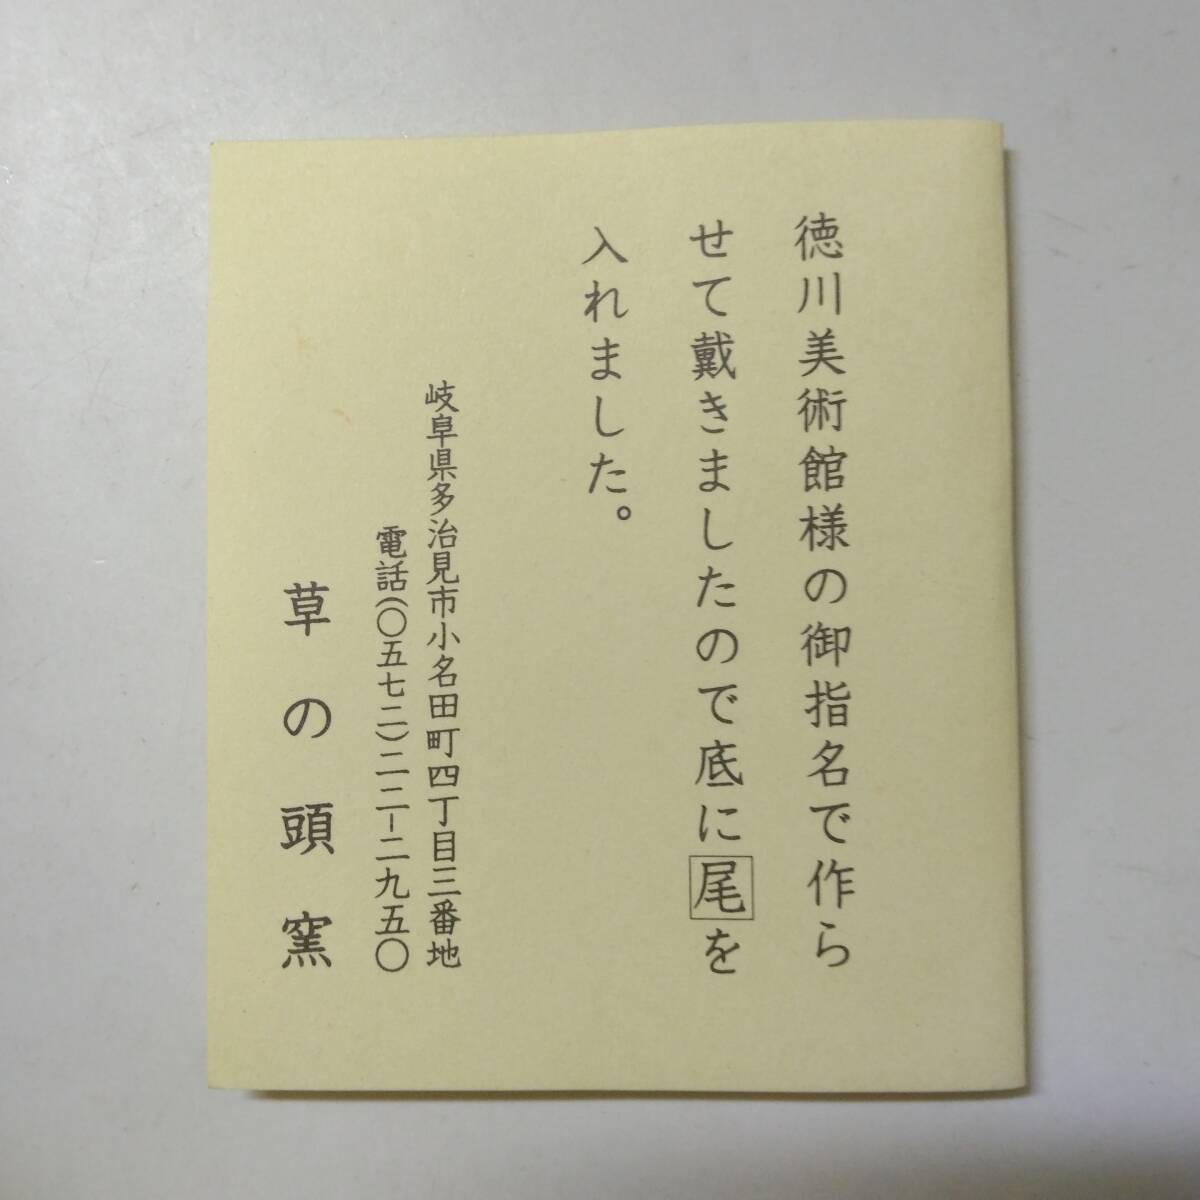 徳川美術館様の御指名で作ら
せて戴きましたので底に尾を
入れました。
岐阜県多治見市小名田町四丁目三番地
電話(〇五七二)二二-二九五〇
草の頭窯